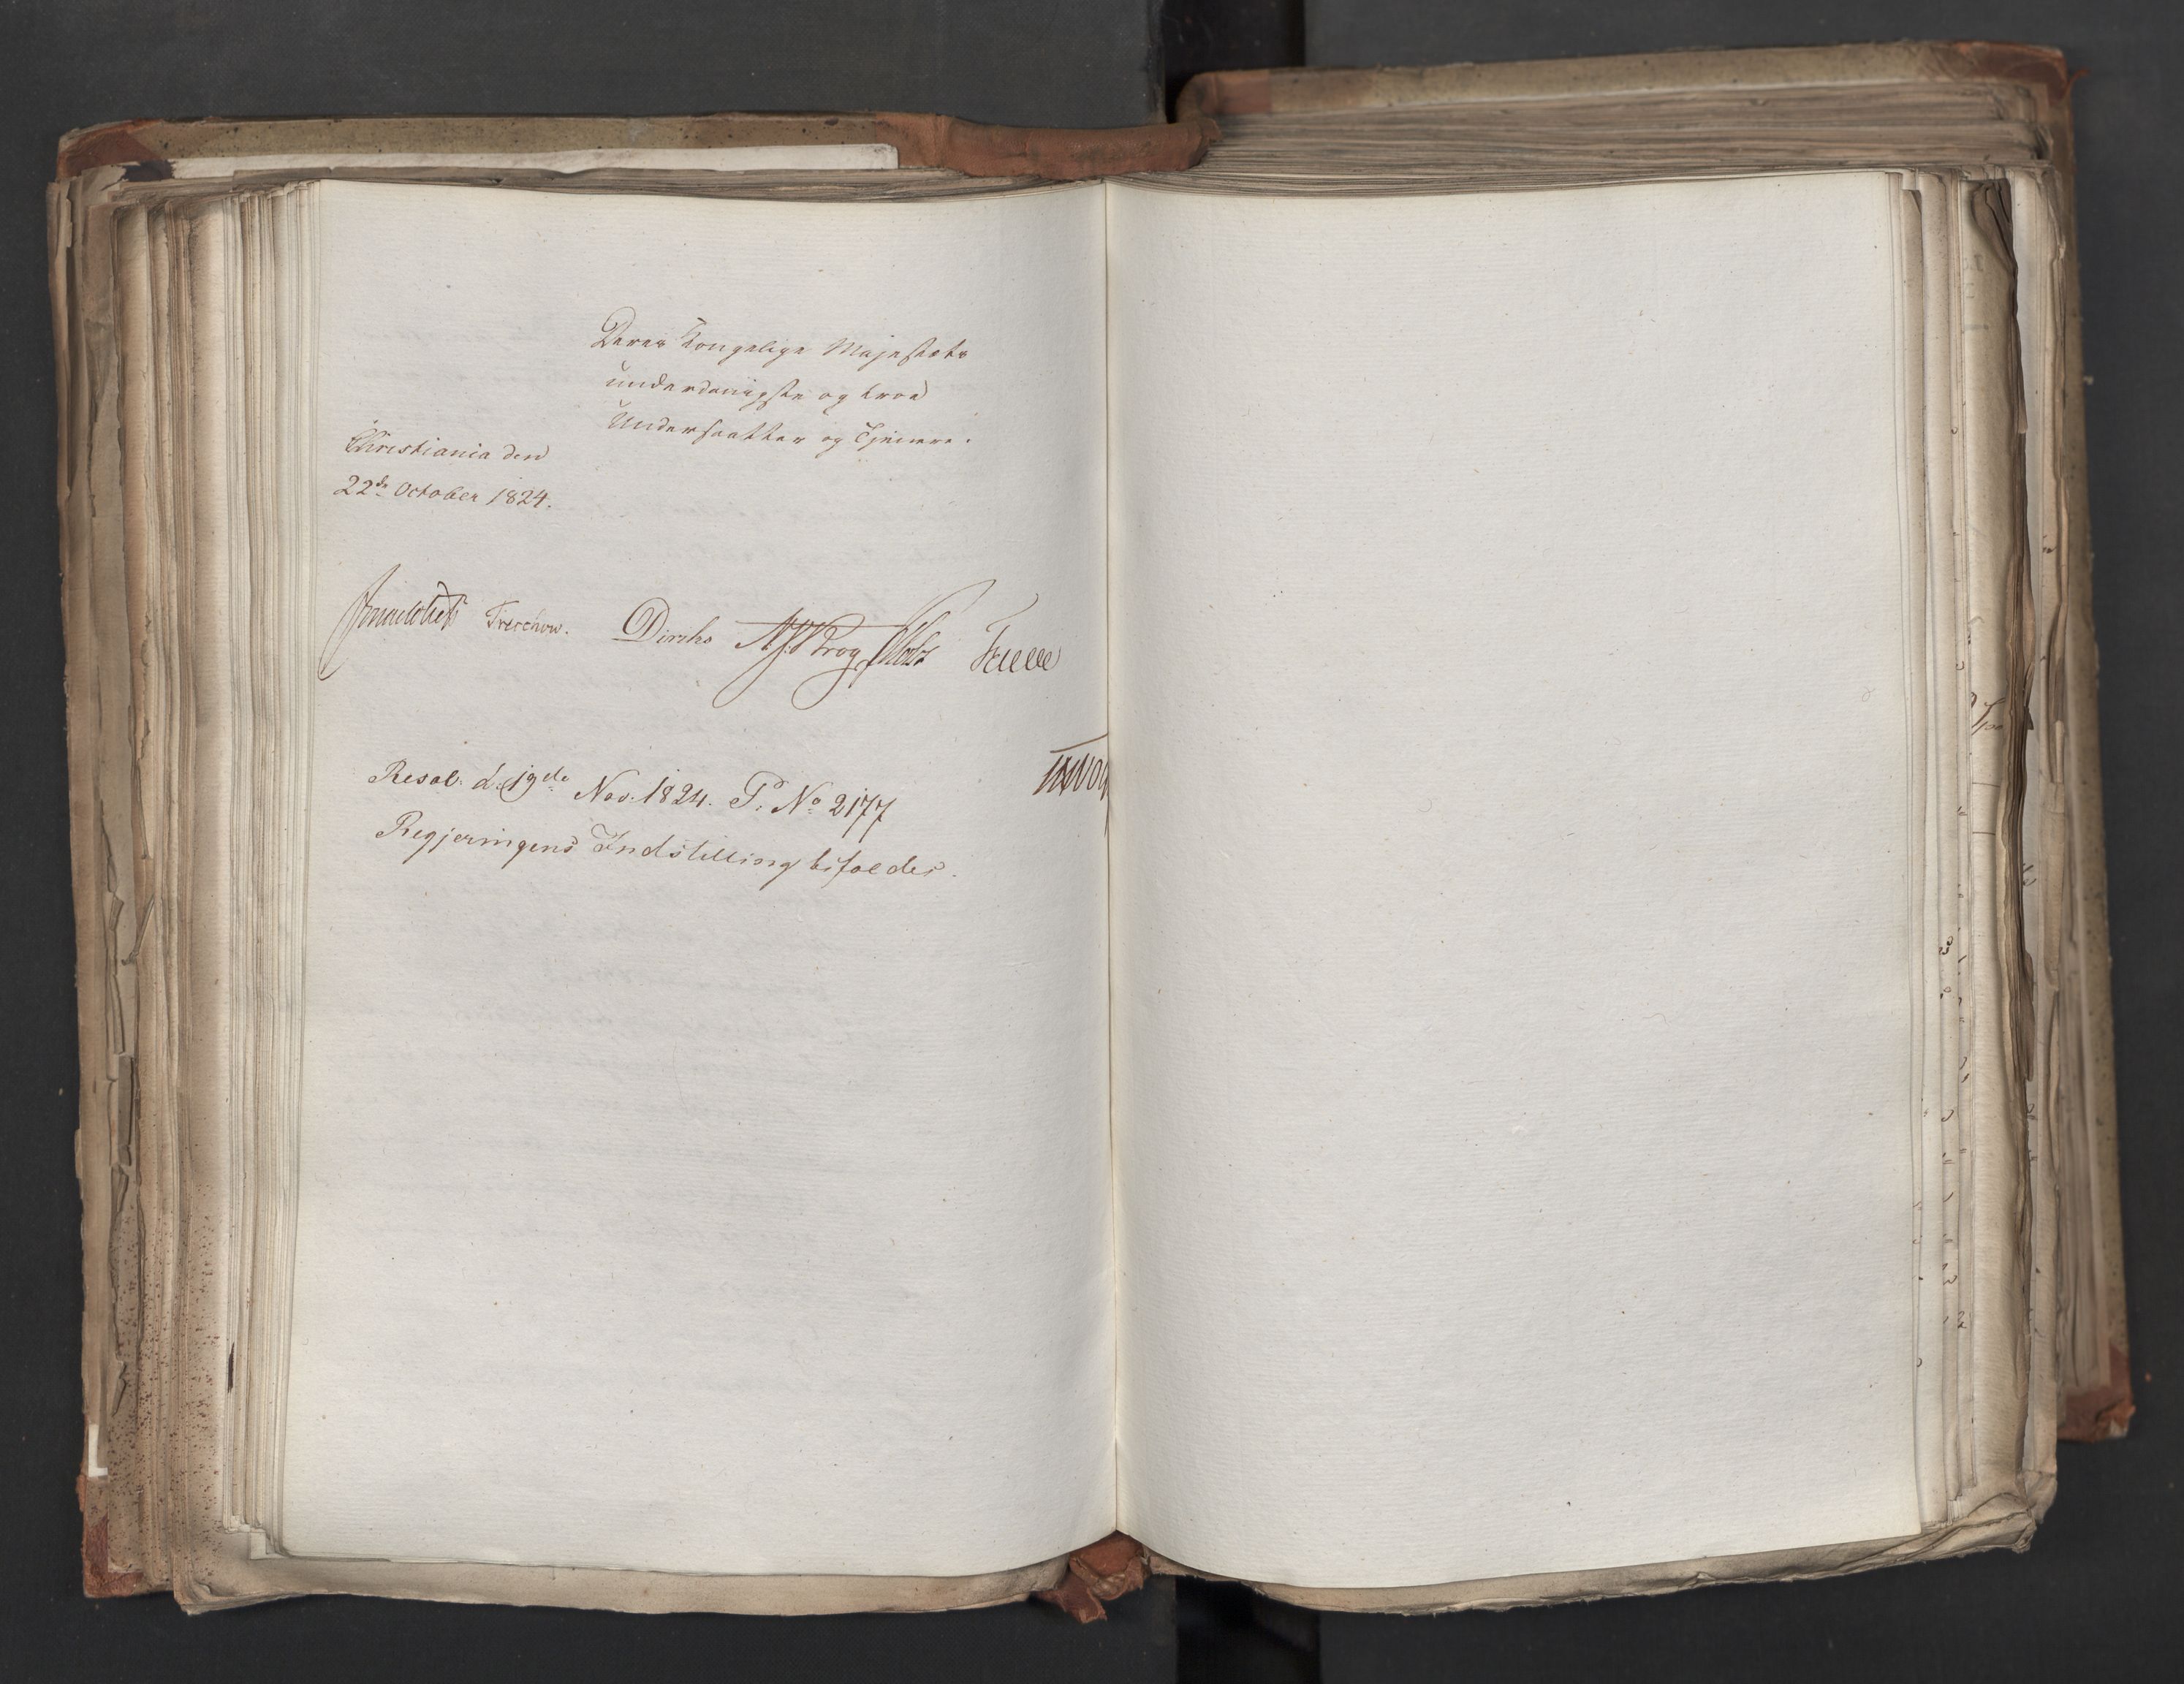 Deres Kongelige Majestæts
underdanigste og troe
Undersaatter og Tjenere.
Christiania den
22de October 1824.
Treschow. Diriks Krog Holst
Resol. d. 19de Nov. 1824. P. No 2177
Regjeringens Indstilling bifaldes.